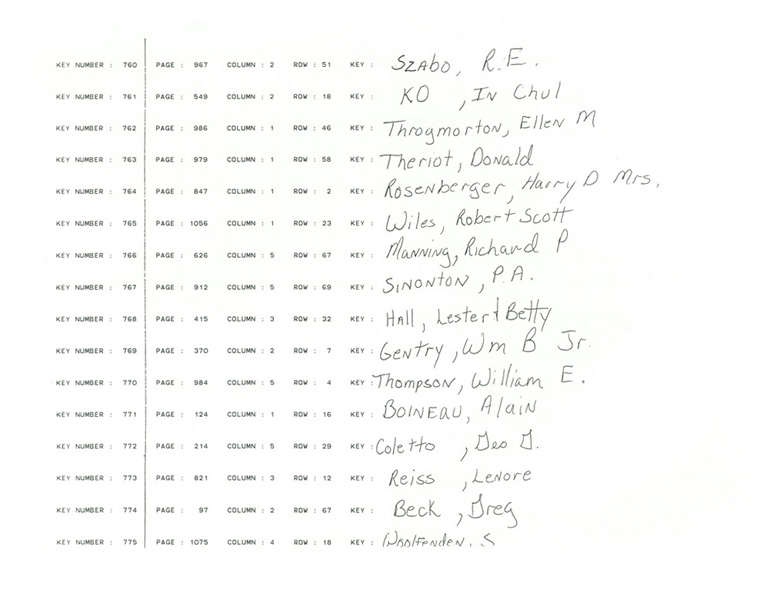 KEY NUMBER : 760 PAGE : 967 COLUMN : 2 ROW : 51 KEY : Szabo, R.E.
KEY NUMBER : 761 PAGE : 549 COLUMN : 2 ROW : 18 KEY : KO , IN Chul
KEY NUMBER : 762 PAGE : 986 COLUMN : 1 ROW : 46 KEY : Throgmorton, Ellen M
KEY NUMBER : 763 PAGE : 979 COLUMN : 1 ROW : 58 KEY : Theriot, Donald
KEY NUMBER : 764 PAGE : 847 COLUMN : 1 ROW : 2 KEY : Rosenberger, Harry D Mrs.
KEY NUMBER : 765 PAGE : 1056 COLUMN : 1 ROW : 23 KEY : Wiles, Robert Scott
KEY NUMBER : 766 PAGE : 626 COLUMN : 5 ROW : 67 KEY : Manning, Richard P
KEY NUMBER : 767 PAGE : 912 COLUMN : 5 ROW : 69 KEY : SINONTON, P.A.
KEY NUMBER : 768 PAGE : 415 COLUMN : 3 ROW : 32 KEY : Hall, Lester & Betty
KEY NUMBER : 769 PAGE : 370 COLUMN : 2 ROW : 7 KEY : Gentry, Wm B Jr.
KEY NUMBER : 770 PAGE : 984 COLUMN : 5 ROW : 4 KEY : Thompson, William E.
KEY NUMBER : 771 PAGE : 124 COLUMN : 1 ROW : 16 KEY : BOINEAU, Alain
KEY NUMBER : 772 PAGE : 214 COLUMN : 5 ROW : 29 KEY : Coletto , Geo G.
KEY NUMBER : 773 PAGE : 821 COLUMN : 3 ROW : 12 KEY : Reiss , Lenore
KEY NUMBER : 774 PAGE : 97 COLUMN : 2 ROW : 67 KEY : Beck , Greg
KEY NUMBER : 775 PAGE : 1075 COLUMN : 4 ROW : 18 KEY : Woolfenden, S